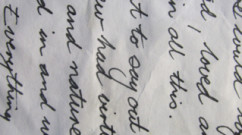 I loved a
in all this.
t to say out
had writ
and nature
d in and
Everything